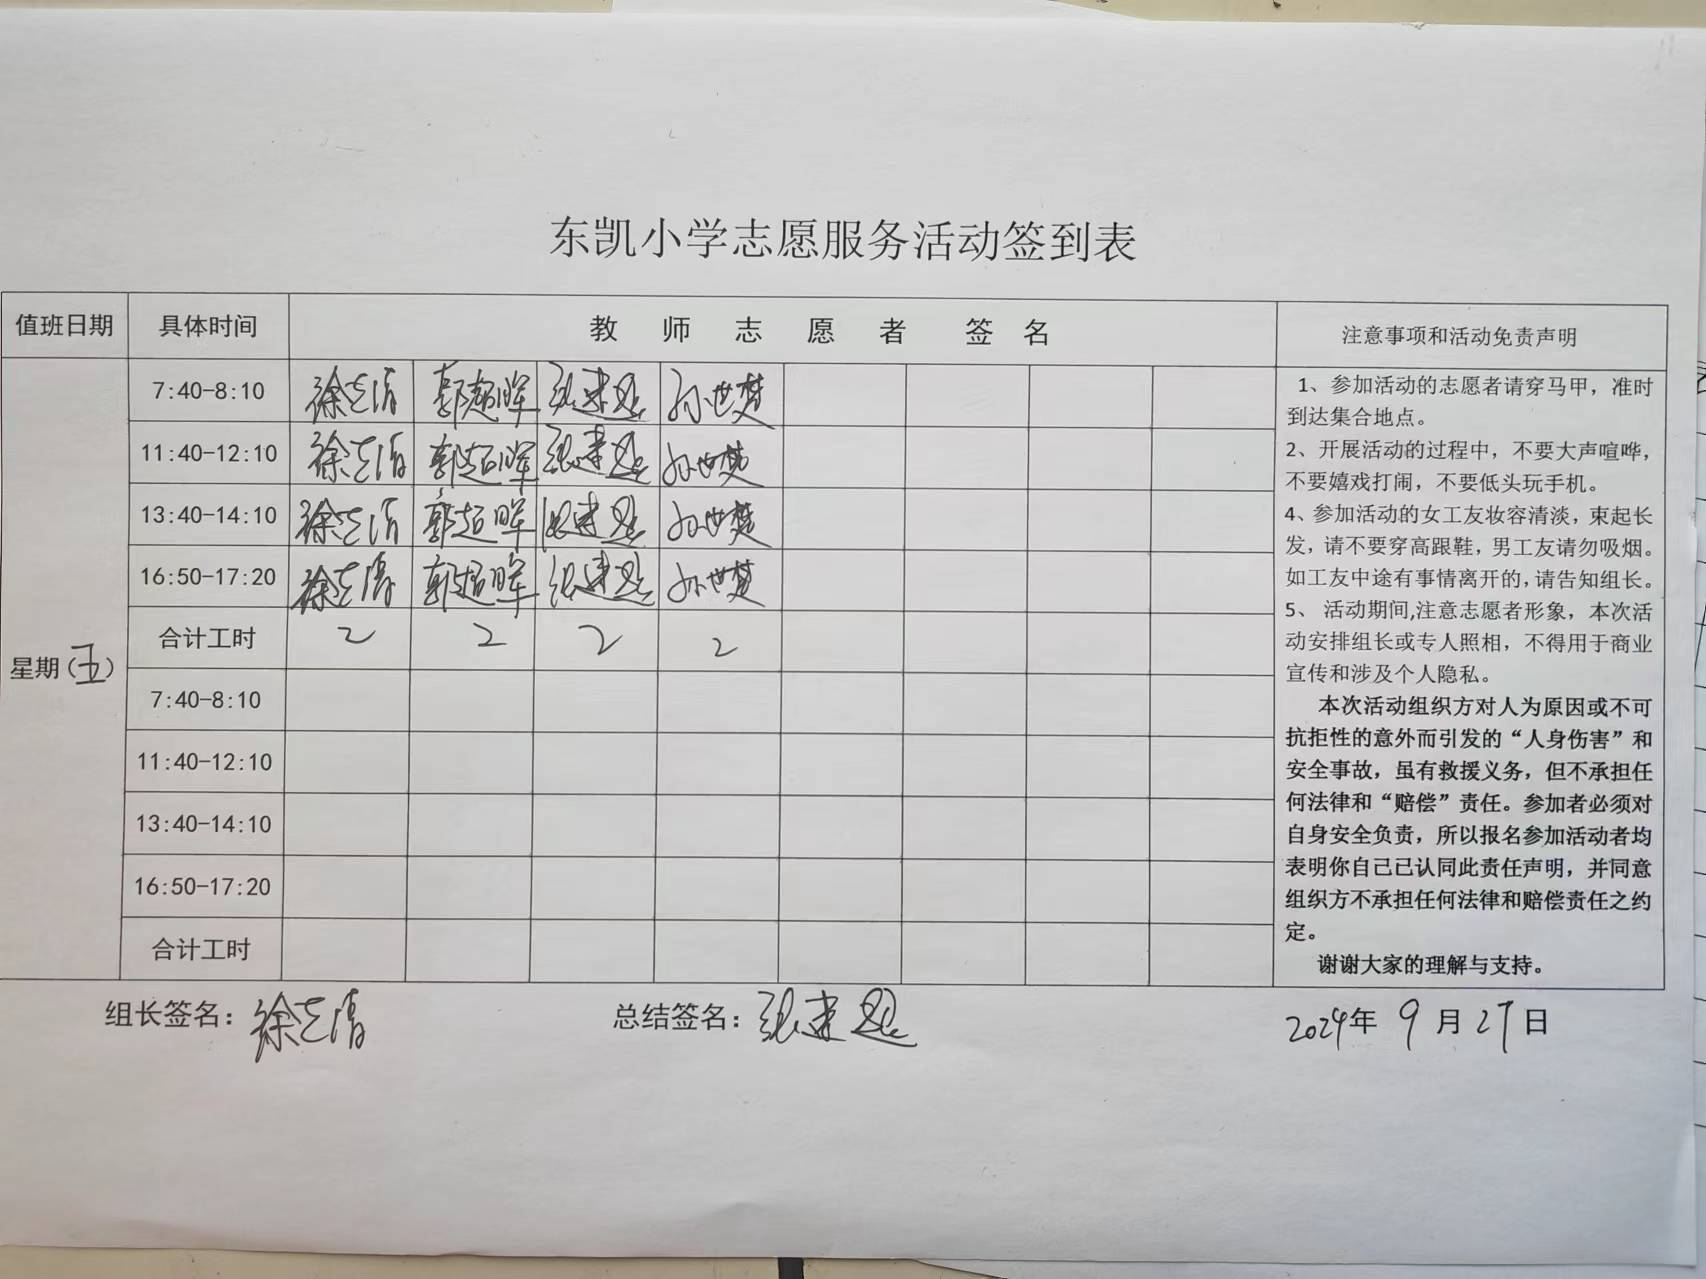 东凯小学志愿服务活动签到表
值班日期 具体时间 教师志愿者 签名 注意事项和活动免责声明
星期(五)
7:40-8:10 徐志清 郭超晖 张建 孙世梦
11:40-12:10 徐志清 郭超晖 张建 孙世梦
13:40-14:10 徐志清 郭超晖 张建 孙世梦
16:50-17:20 徐志清 郭超晖 张建 孙世梦
合计工时 2 2 2 2
7:40-8:10
11:40-12:10
13:40-14:10
16:50-17:20
合计工时
1、参加活动的志愿者请穿马甲，准时
到达集合地点。
2、开展活动的过程中，不要大声喧哗，
不要嬉戏打闹，不要低头玩手机。
4、参加活动的女工友妆容清淡，束起长
发，请不要穿高跟鞋，男工友请勿吸烟。
如工友中途有事情离开的，请告知组长。
5、 活动期间,注意志愿者形象，本次活
动安排组长或专人照相，不得用于商业
宣传和涉及个人隐私。
本次活动组织方对人为原因或不可
抗拒性的意外而引发的“人身伤害”和
安全事故，虽有救援义务，但不承担任
何法律和“赔偿”责任。参加者必须对
自身安全负责，所以报名参加活动者均
表明你自己已认同此责任声明，并同意
组织方不承担任何法律和赔偿责任之约
定。
谢谢大家的理解与支持。
组长签名：徐志清 总结签名：张建 2024年 9月27日